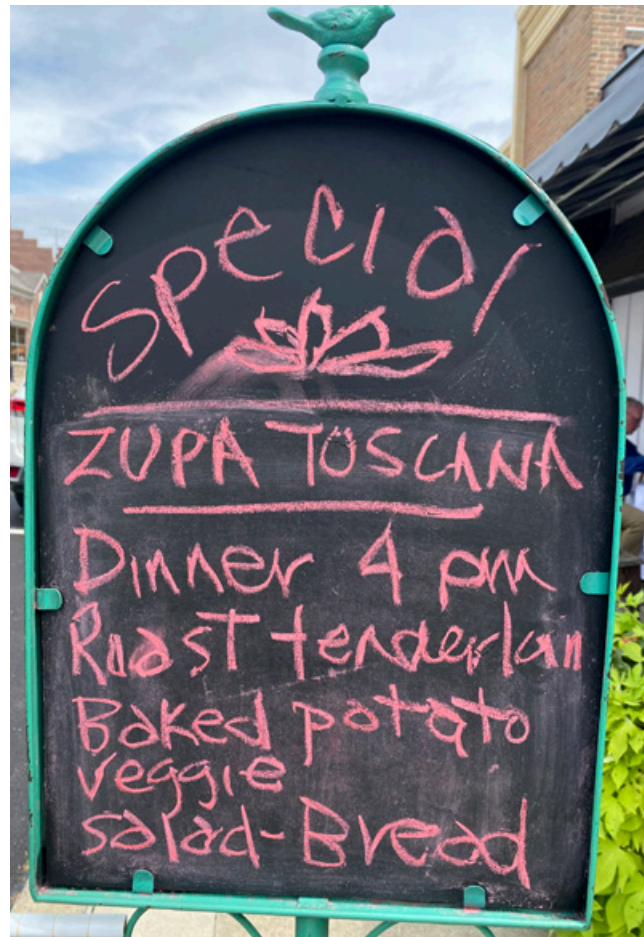 Special
ZUPA TOSCANA
Dinner 4 pm
Roast tenderloin
Baked potato
veggie
salad-Bread